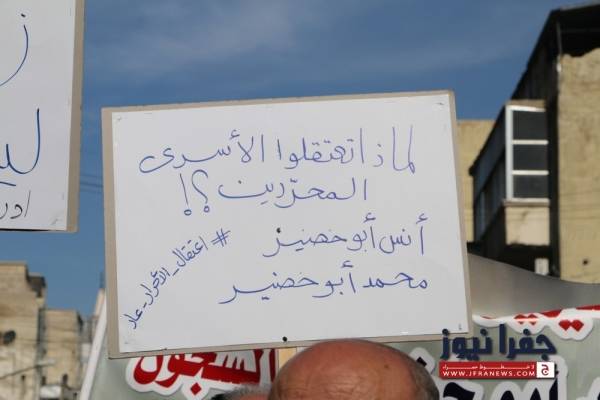 لماذا تعتقلوا الأسرى
المحررين ؟!
أنس أبو خضير
محمد أبو خضير
#اعتقال_الأحرار_عار
السجون
جفرا نيوز
WWW.JFRANEWS.COM